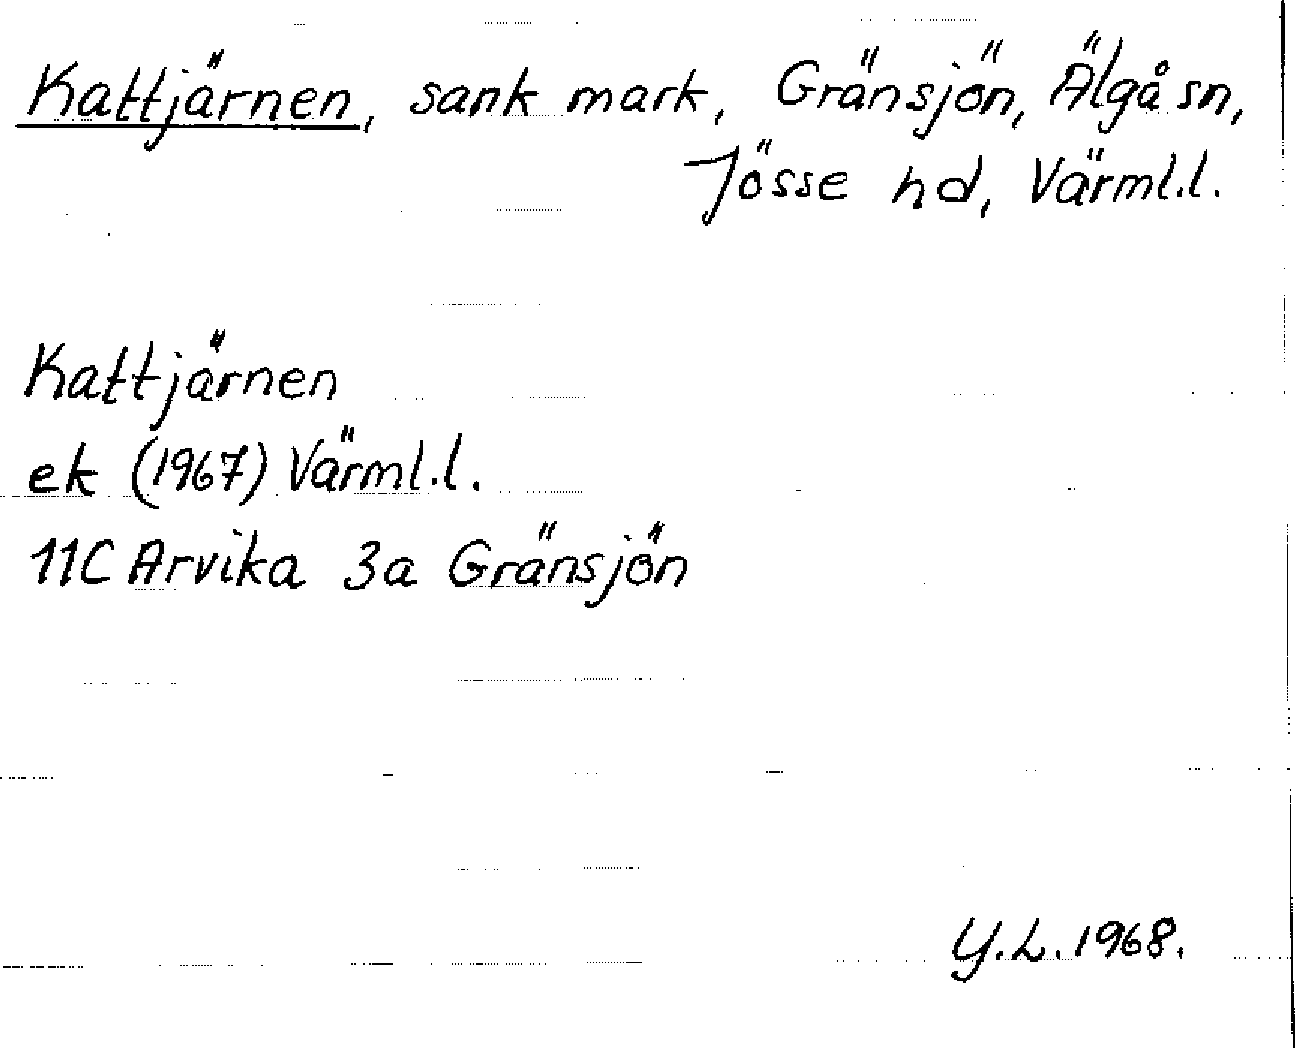 Kattjärnen, sank mark, Gränsjön, Älgå sn,
Jösse hd, Värml.l.
Kattjärnen
ek (1967) Värml.l.
11C Arvika 3a Gränsjön
Y.L. 1968.